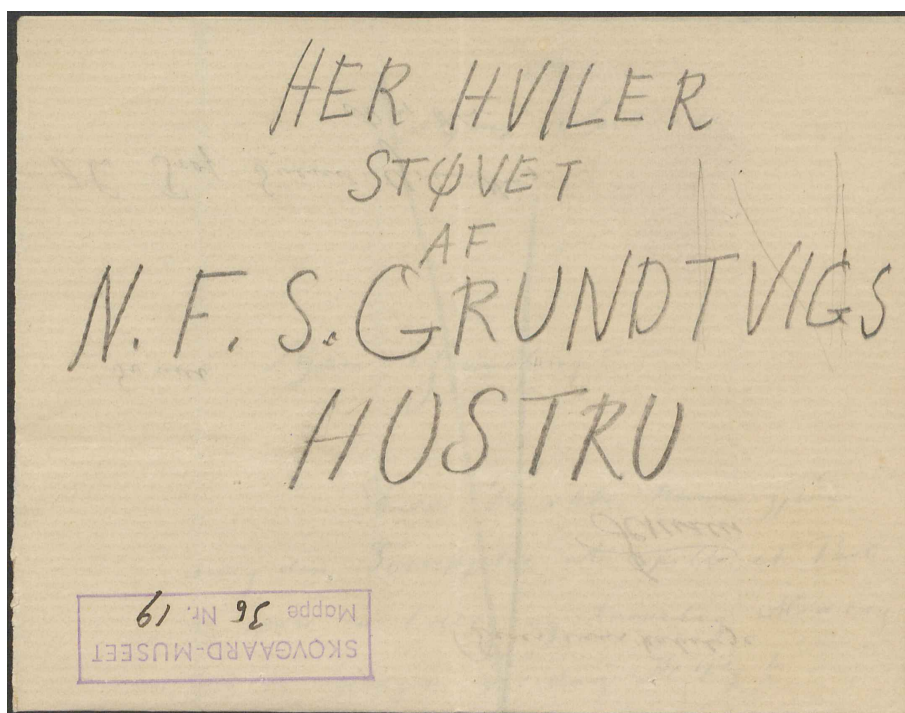 HER HVILER
STØVET
AF
N. F. S. GRUNDTVIGS
HUSTRU
SKOVGAARD-MUSEET
Mappe 36 Nr. 19